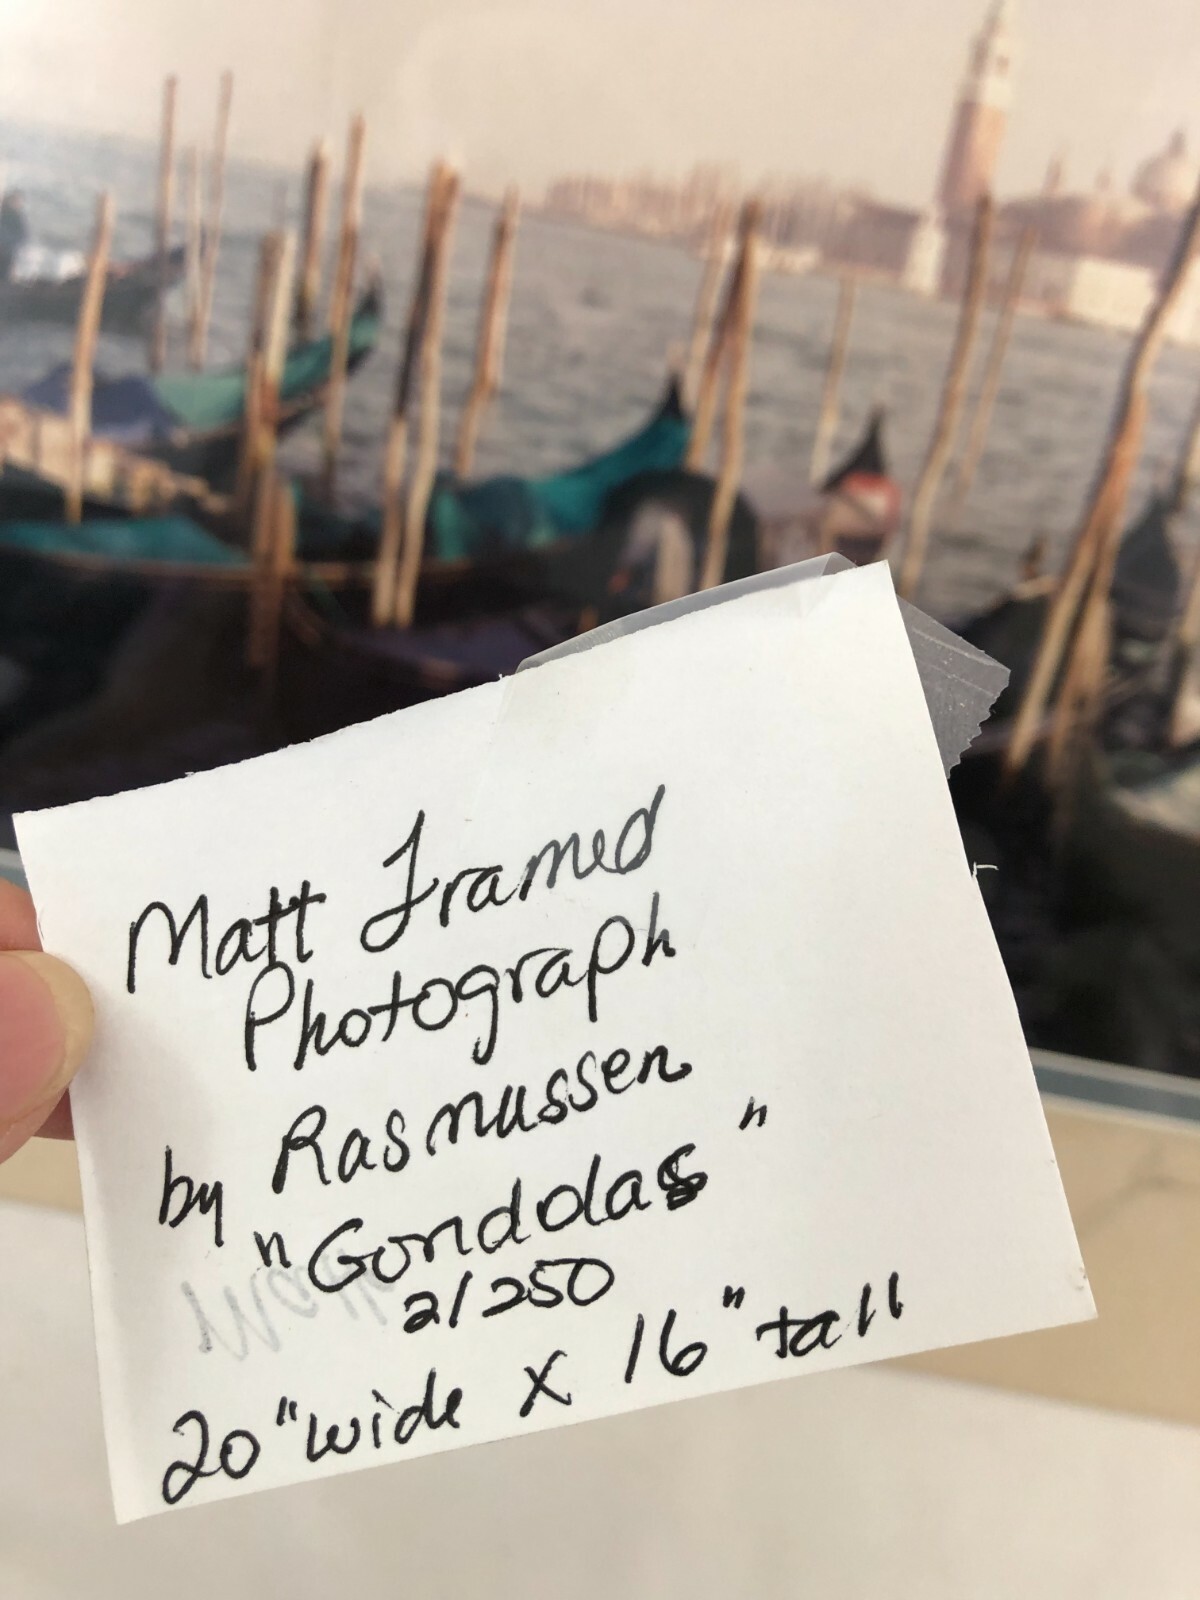 Matt Framed
Photograph
by Rasmussen
"Gondolas"
2/250
20" wide x 16" tall